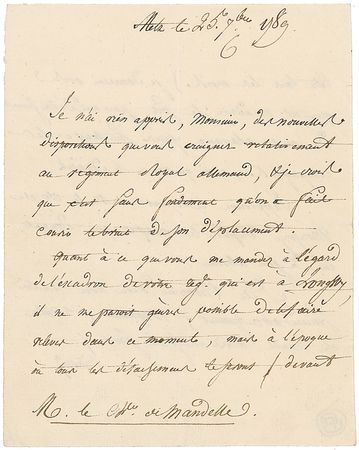 Metz le 25. 7.bre 1789.
Je n'ai rien appris, Monsieur, des nouvelles
dispositions que vous craignez relativement
au régiment Royal allemand, & je crois
que c'est sans fondement qu'on a fait
courir le bruit de son déplacement.
Quant à ce que vous me mandez à l'égard
de l'escadron de votre reg.t qui est à Longwy,
il ne me paroit guères possible de le faire
relever dans ce moment, mais à l'époque
où tous les détachements le seront / devant
M. le Ch.er de Mandelle.